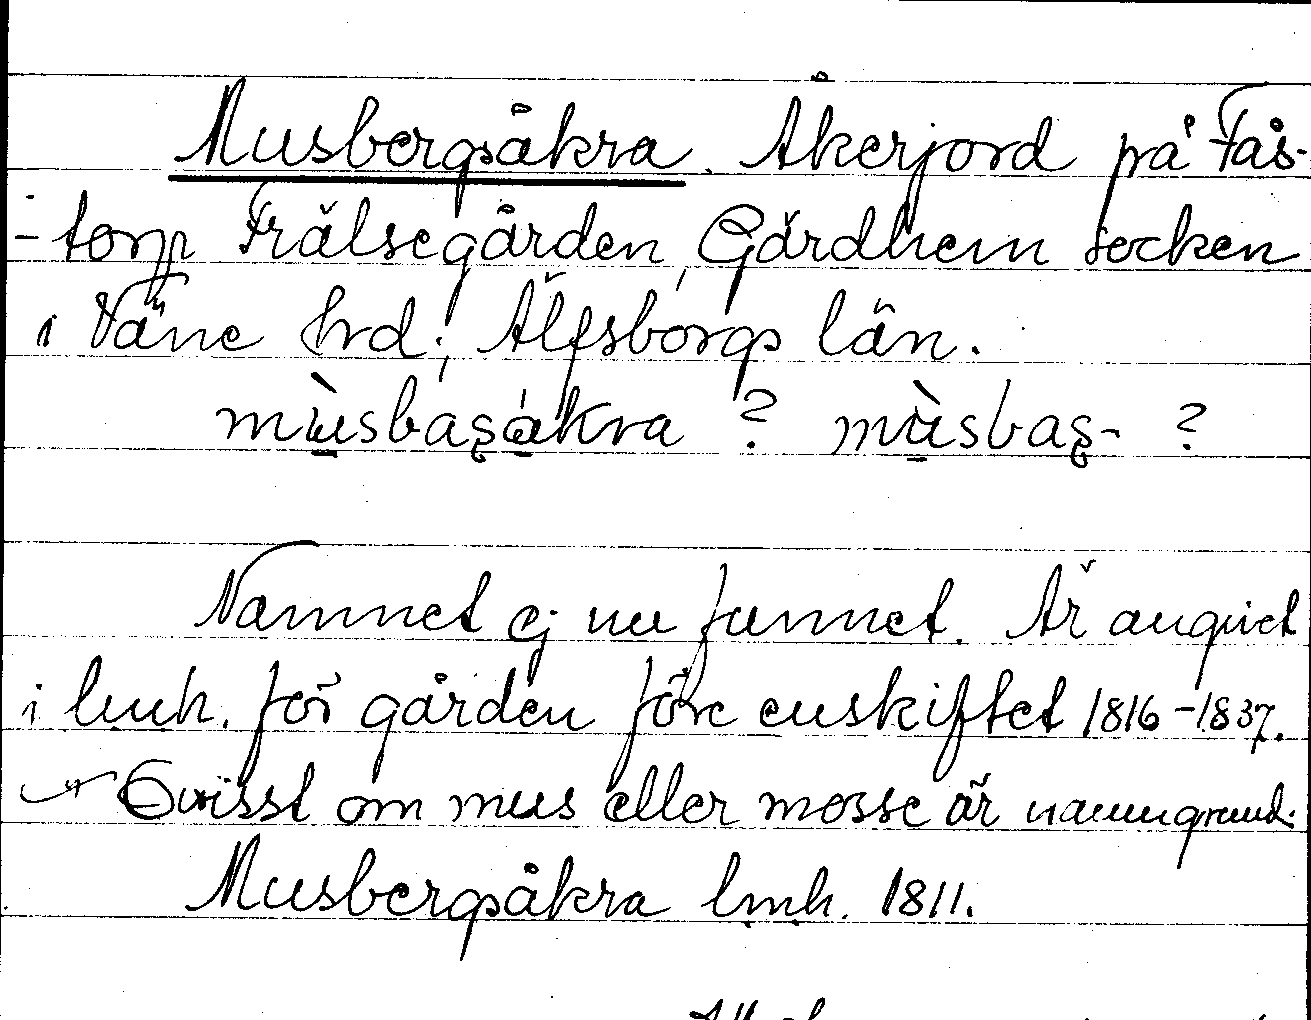 Musbergsåkra. Åkerjord på Fås-
-torp Frälsegården, Gärdhem socken
i Väne hrd; Älfsborgs län.
mùsbaʂåkra ? mùsbaʂ- ?
Namnet ej nu funnet. Är angivet
i lmh. för gården före enskiftet 1816-1837.
Ovisst om mus eller mosse är namngrund.
Musbergsåkra lmh. 1811.